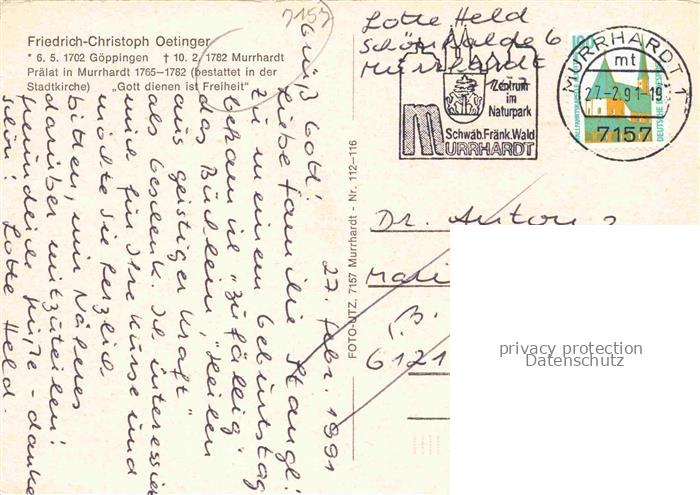 Friedrich-Christoph Oetinger
* 6. 5. 1702 Göppingen † 10. 2. 1782 Murrhardt
Prälat in Murrhardt 1765—1782 (bestattet in der
Stadtkirche) „Gott dienen ist Freiheit"
7157
Lotte Held
Schönhalde 6
Murrhardt
7157
Zentrum
im
Naturpark
Schwäb.Fränk.Wald
MURRHARDT
MURRHARDT 1
mt
27.-2.91-19
7157
100
DEUTSCHE BUNDESPOST
27. Febr. 1991
Grüß Gott!
Liebe Familie Stangl!
Zu meinem Geburtstag
bekam ich „zufällig"
das Büchlein „Heilen
aus geistiger Kraft"
als Geschenk. Ich interessiere
mich für Ihre Kurse und
möchte Sie herzlich
bitten, mir Näheres
darüber mitzuteilen!
Freundliche Grüße - danke
schön! Lotte Held.
FOTO-UTZ, 7157 Murrhardt - Nr. 112—116
Dr. Anton
6121
privacy protection
Datenschutz